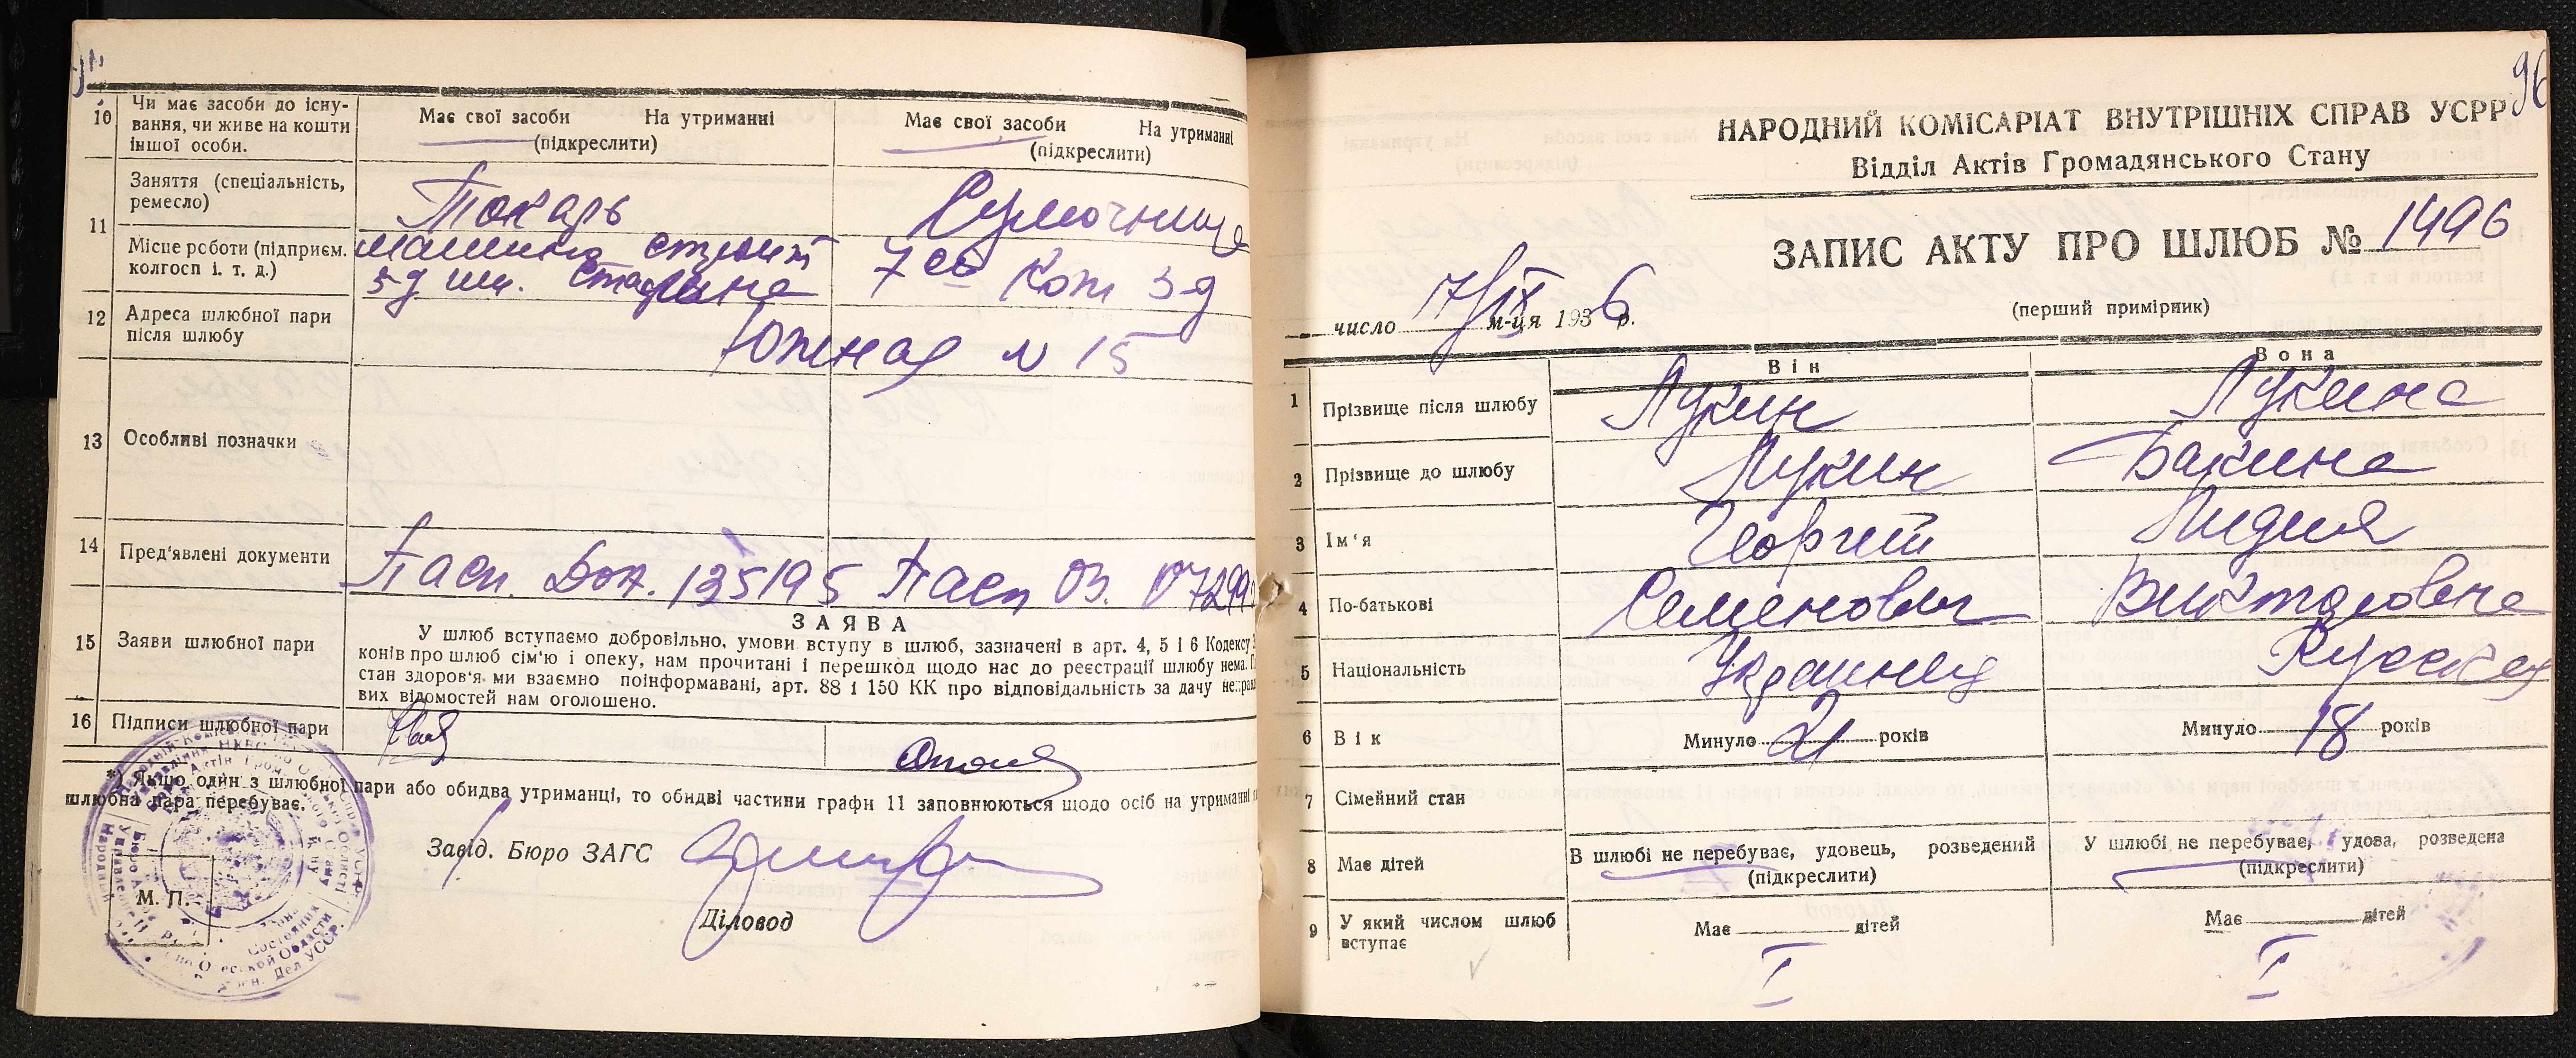 10
Чи має засоби до існу-
вання, чи живе на кошти
іншої особи.
Має свої засоби На утриманні
(підкреслити)
Має свої засоби На утриманні
(підкреслити)
11
Заняття (спеціальність,
ремесло)
Токарь
Сумочница
Місце роботи (підприєм.
колгосп і. т. д.)
машино строит
з-д им. Сталина
7ой Кож з-д
12
Адреса шлюбної пари
після шлюбу
Южная № 15
13
Особливі позначки
14
Пред'явлені документи
Пасп. 135195 Пасп ОЗ.
15
Заяви шлюбної пари
ЗАЯВА
У шлюб вступаємо добровільно, умови вступу в шлюб, зазначені в арт. 4, 5 і 6 Кодексу
конів про шлюб сім'ю і опеку, нам прочитані і перешкод щодо нас до реєстрації шлюбу нема.
стан здоров'я ми взаємно поінформавані, арт. 88 і 150 КК про відповідальність за дачу неправ
вих відомостей нам оголошено.
16
Підписи шлюбної пари
*) Якщо один з шлюбної пари або обидва утриманці, то обидві частини графи 11 заповнюються щодо осіб на утриманні
шлюбна пара перебуває.
Завід. Бюро ЗАГС
М. П.
Діловод
96
НАРОДНИЙ КОМІСАРІАТ ВНУТРІШНІХ СПРАВ УСРР
Відділ Актів Громадянського Стану
ЗАПИС АКТУ ПРО ШЛЮБ № 1496
(перший примірник)
число 17/IX м-ця 1936 р.
Він
Вона
1 Прізвище після шлюбу Лукин Лукина
2 Прізвище до шлюбу Лукин Бакина
3 Ім'я Георгий Лидия
4 По-батькові Семенович Викторовна
5 Національність Украинец Русская
6 Вік Минуло 21 років Минуло 18 років
7 Сімейний стан
8 Має дітей
В шлюбі не перебуває, удовець, розведений
(підкреслити)
У шлюбі не перебуває, удова, розведена
(підкреслити)
9 У який числом шлюб
вступає
Має дітей
Має дітей
I
I